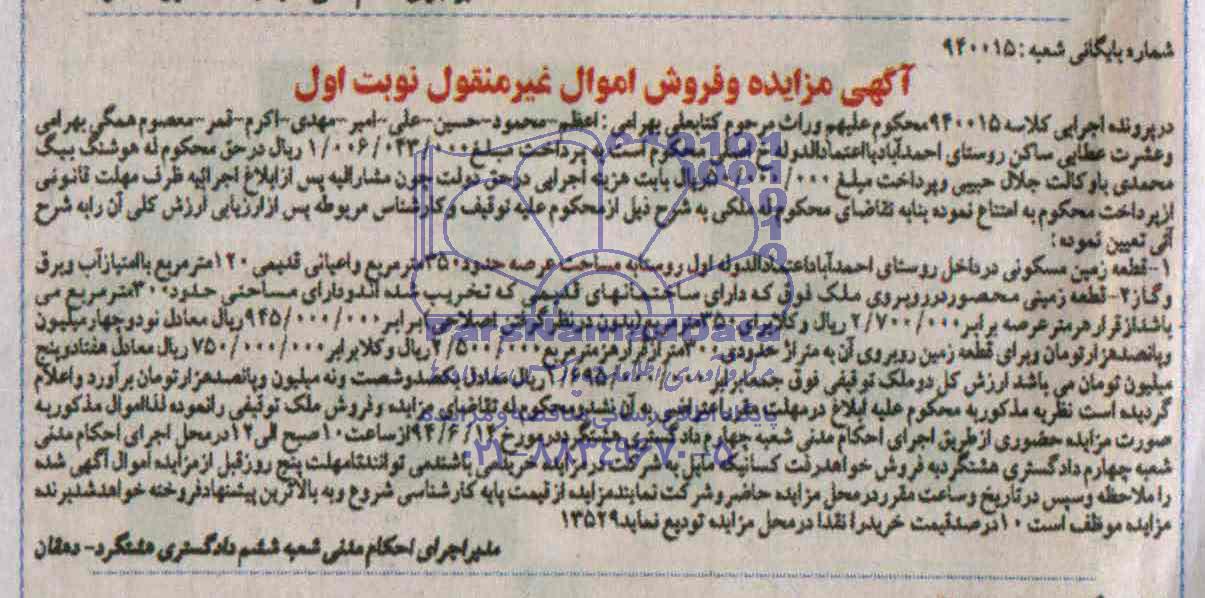 شماره بایگانی شعبه : ۹۴۰۰۱۵
آگهی مزایده وفروش اموال غیرمنقول نوبت اول
درپرونده اجرایی کلاسه ۹۴۰۰۱۵محکوم علیهم وراث مرحوم کتابعلی بهرامی : اعظم-محمود-حسین-علی-امیر-مهدی-اکرم-قمر-معصوم همگی بهرامی
وعشرت عطایی ساکن روستای احمدآباداعتمادالدوله خ اصلی محکوم است به پرداخت مبلغ ۱/۰۰۶/۰۴۳/۰۰۰ ریال درحق محکوم له هوشنگ بیگ
محمدی باوکالت جلال حبیبی وپرداخت مبلغ ۵۰/۰۰۰/۰۰۰ریال بابت هزینه اجرایی درحق دولت چون مشارالیه پس ازابلاغ اجرائیه ظرف مهلت قانونی
ازپرداخت محکوم به امتناع نموده بنابه تقاضای محکوم له ملکی به شرح ذیل ازمحکوم علیه توقیف وکارشناس مربوطه پس ازارزیابی ارزش کلی آن رابه شرح
آتی تعیین نموده :
۱-قطعه زمین مسکونی درداخل روستای احمدآباداعتمادالدوله اول روستابه مساحت عرصه حدود۳۵۰مترمربع واعیانی قدیمی ۱۲۰مترمربع باامتیازآب وبرق
وگاز۲-قطعه زمینی محصوردرروبروی ملک فوق که دارای ساختمانهای قدیمی که تخریب شده اندودارای مساحتی حدود۳۰۰مترمربع می
باشدازقرارهرمترعرصه برابر۲/۷۰۰/۰۰۰ ریال وکلابرای ۳۵۰مترمربع(بدون درنظرگرفتن اصلاحی)برابر۹۴۵/۰۰۰/۰۰۰ریال معادل نودوچهارمیلیون
وپانصدهزارتومان وبرای قطعه زمین روبروی آن به متراژ حدودی۳۰۰مترازقرارهرمترمربع ۲/۵۰۰/۰۰۰ریال وکلابرابر۷۵۰/۰۰۰/۰۰۰ ریال معادل هفتادوپنج
میلیون تومان می باشد ارزش کل دوملک توقیفی فوق جمعابرابر۱/۶۹۵/۰۰۰/۰۰۰ریال معادل یکصدوشصت ونه میلیون وپانصدهزارتومان برآورد واعلام
گردیده است نظریه مذکوربه محکوم علیه ابلاغ درمهلت مقرر اعتراضی به آن نشده محکوم له تقاضای مزایده وفروش ملک توقیفی رانموده لذااموال مذکوربه
صورت مزایده حضوری ازطریق اجرای احکام مدنی شعبه چهارم دادگستری هشتگرددرمورخ ۹۴/۶/۱۴ازساعت۱۰صبح الی۱۲درمحل اجرای احکام مدنی
شعبه چهارم دادگستری هشتگردبه فروش خواهدرفت کسانیکه مایل به شرکت درمزایده خریدمی باشندمی توانندتامهلت پنج روزقبل ازمزایده اموال آگهی شده
راملاحظه وسپس درتاریخ وساعت مقرردرمحل مزایده حاضروشرکت نمایندمزایده ازقیمت پایه کارشناسی شروع وبه بالاترین پیشنهادفروخته خواهدشدبرنده
مزایده موظف است ۱۰درصدقیمت خریدرا نقدا درمحل مزایده تودیع نماید۱۳۵۲۹
مدیراجرای احکام مدنی شعبه ششم دادگستری هشتگرد- دهقان
ParsNamadData
پایگاه اطلاع رسانی مناقصه و مزایده
۰۲۱-۸۸۳۴۹۶۷۰-۵